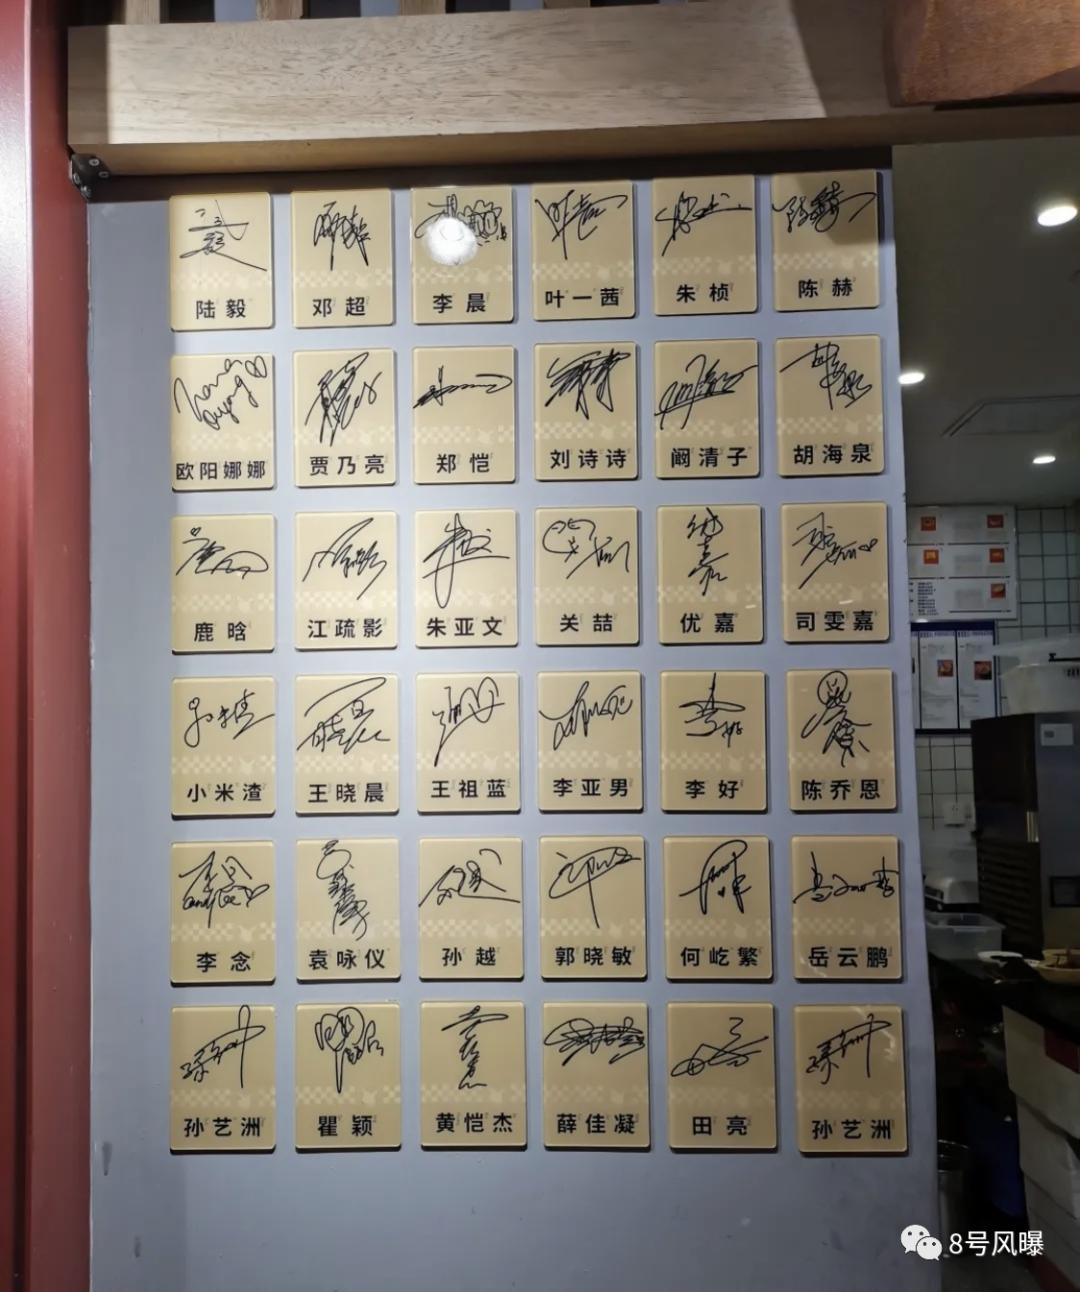 陆毅
邓超
李晨
叶一茜
朱桢
陈赫
欧阳娜娜
贾乃亮
郑恺
刘诗诗
阚清子
胡海泉
鹿晗
江疏影
朱亚文
关喆
优嘉
司雯嘉
小米渣
王晓晨
王祖蓝
李亚男
李好
陈乔恩
李念
袁咏仪
孙越
郭晓敏
何屹繁
岳云鹏
孙艺洲
瞿颖
黄恺杰
薛佳凝
田亮
孙艺洲
8号风曝